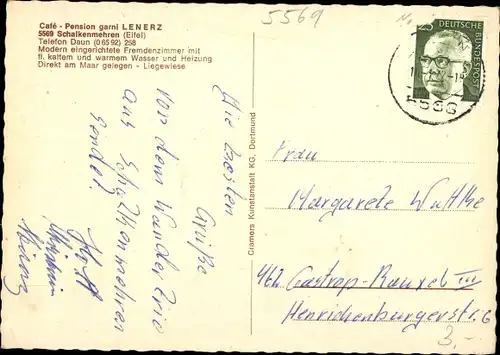 Café - Pension garni LENERZ
5569 Schalkenmehren (Eifel)
Telefon Daun (0 65 92) 258
Modern eingerichtete Fremdenzimmer mit
fl. kaltem und warmem Wasser und Heizung
Direkt am Maar gelegen - Liegewiese
5569
25
DEUTSCHE
BUNDESPOST
Die besten
Grüße
von dem Wander Trio
aus Schalkenmehren
sendet
Cramers Kunstanstalt KG, Dortmund
Frau
Margarete Wuttke
462 Castrop-Rauxel III
Henrichenburgerstr. 6
3,-